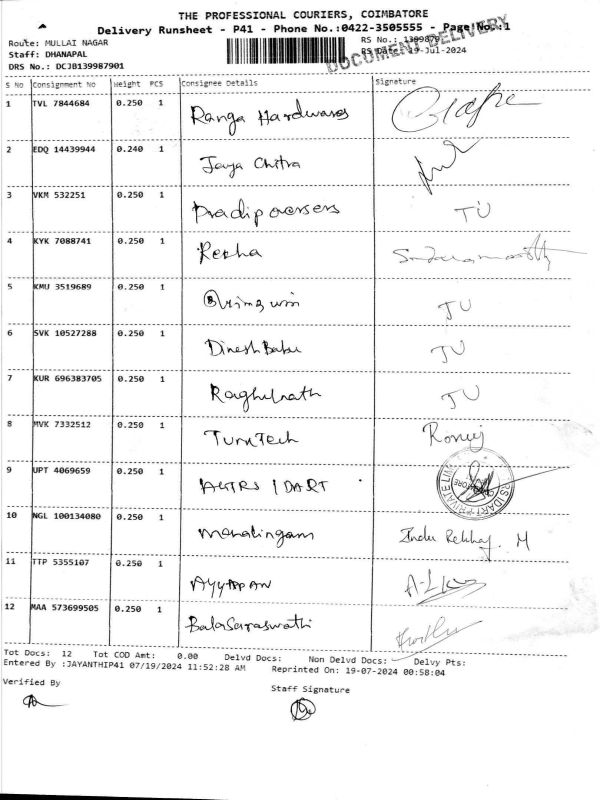 THE PROFESSIONAL COURIERS, COIMBATORE
Delivery Runsheet - P41 - Phone No.:0422-3505555 - Page No.:1
Route: MULLAI NAGAR
RS No.: 1399879
Staff: DHANAPAL
RS Date: 19-Jul-2024
DOCUMENT DELIVERY
DRS No.: DCJB139987901
S No Consignment No Weight PCS Consignee Details Signature
1 TVL 7844684 0.250 1 Ranga Hardwares
2 EDQ 14439944 0.240 1 Jaya Chitra
3 VKM 532251 0.250 1 Pradip oversers TU
4 KYK 7088741 0.250 1 Rekha
5 KMU 3519689 0.250 1 TU
6 SVK 10527288 0.250 1 Dinesh Babu TU
7 KUR 696383705 0.250 1 Raghunath TU
8 MVK 7332512 0.250 1 TurnTech
9 UPT 4069659 0.250 1 IDART
10 NGL 100134080 0.250 1 Mahalingam Indu Rekha. M
11 TTP 5355107 0.250 1 AYYAPPAN
12 MAA 573699505 0.250 1 Balasaraswathi
Tot Docs: 12 Tot COD Amt: 0.00 Delvd Docs: Non Delvd Docs: Delvy Pts:
Entered By :JAYANTHIP41 07/19/2024 11:52:28 AM Reprinted On: 19-07-2024 00:58:04
Verified By
Staff Signature